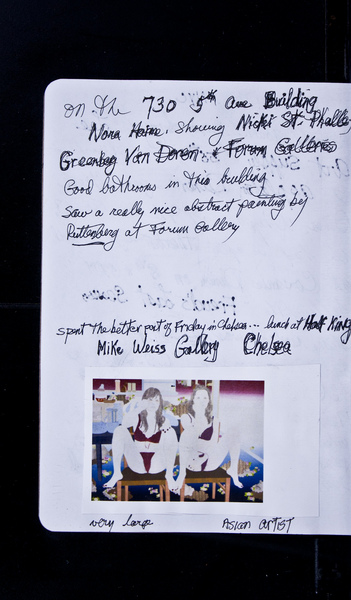 on the 730 5th ave Building
Nora Haime, showing Nicki St. Phalle
Greenberg Van Doren & Forum Galleries
Good bathrooms in this building
Saw a really nice abstract painting by
Ruttenberg at Forum Gallery
spent the better part of Friday in Chelsea... lunch at Half King
Mike Weiss Gallery Chelsea
very large Asian ARTIST